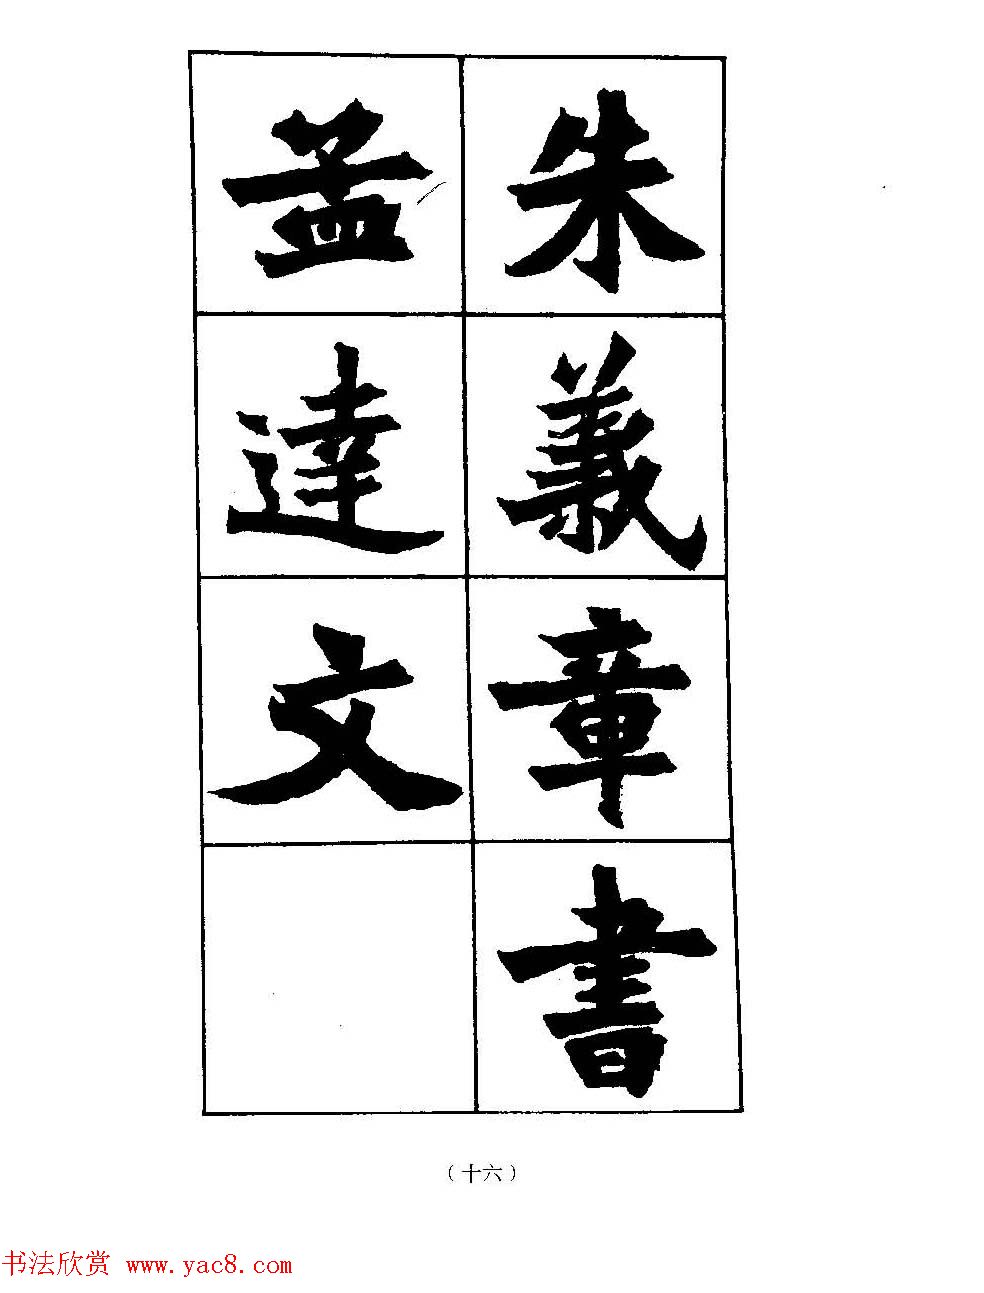 朱義章書
孟達文
（十六）
书法欣赏 www.yac8.com